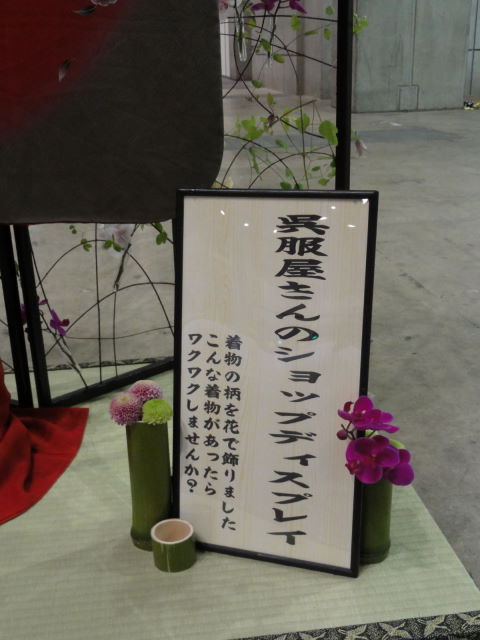 呉服屋さんのショップディスプレイ
着物の柄を花で飾りました
こんな着物があったら
ワクワクしませんか?